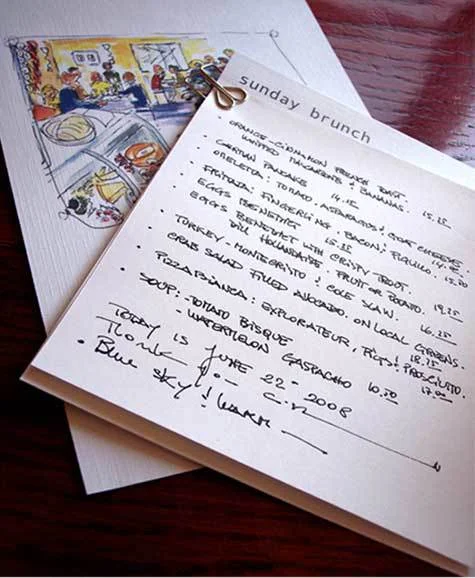 sunday brunch
• ORANGE-CINNAMON FRENCH TOAST
WHIPPED MASCARPONE & BANANAS. 15.25
• GERMAN PANCAKE 14.75
• OMELETTA: TOMATO, ASPARAGUS & GOAT CHEESE
• FRITTATA: FINGERLING, BACON & PIQUILLO.
• EGGS BENEDICT
• EGGS BENEDICT WITH CRISPY TROUT.
DILL HOLLANDAISE. FRUIT OR POTATO. 19.25
• TURKEY-MONTECRISTO & COLE SLAW. 16.25
• CRAB SALAD FILLED AVOCADO. ON LOCAL GREENS.
• PIZZA BIANCA: EXPLORATEUR, FIGS & PROSCIUTTO.
• SOUP: -TOMATO BISQUE
-WATERMELON GASPACHO 10.50
TODAY IS JUNE 22- 2008
Thank
• BLUE SKY! WARM